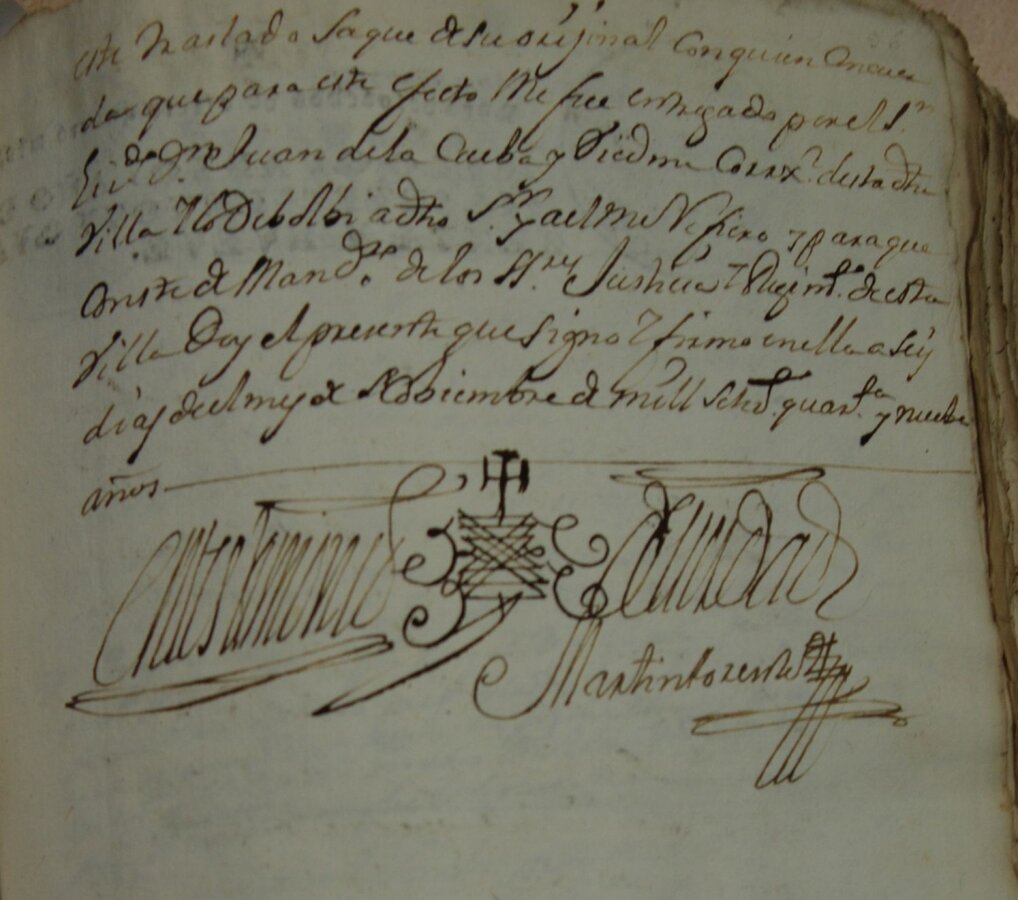 este traslado saque de su orijinal con quien concuer
da que para este efecto me fue entregado por el S.r
Liz.do Dn Juan de la Cueba y Piedra Corrx.r desta dha
Villa Y lo Debolbi a dho S.r y a el me Refiero y para que
Conste de Mand.to de los SS.res Justicia Y Regim.to de esta
Villa Doy el presente que signo Y firmo en ella a seis
dias del mes de Nobiembre de mill setez.os quar.ta y nuebe
años
En testimonio de verdad
Martin Lorente